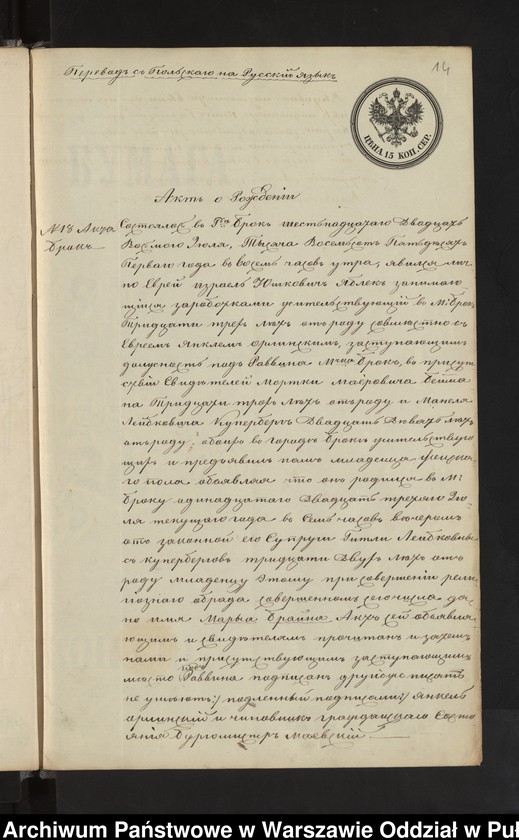 Переводъ съ Польскаго на Русскій языкъ
14
ЦѢНА 15 КОП. СЕР.
Актъ о Рожденіи
№ 18 Бракъ
Состоялось въ Брокъ шестьнадцатаго Двадцать
Восьмого Іюля, Тысяча Восемьсотъ Пятьдесятъ
Перваго года въ Восемь часовъ утра, явился лич
но Еврей Израель Юшковичъ Яблек занимаю
щійся заработками жительствующій въ М. Брокъ
Тридцати трехъ лѣтъ отъ роду совмѣстно съ
Евреемъ Янкелемъ Орлинскимъ, заступающимъ
должность подъ Раввина М. Брокъ, въ присут
ствіи Свидѣтелей Мортки Маеровича Бейма
на Тридцати трехъ лѣтъ отъ роду и Манеля
Лейбковича Купербергъ Двадцать Девять лѣтъ
отъ роду, обоихъ въ городѣ Брокъ жительствую
щихъ и предъявилъ намъ младенца женска
го пола объявляя что онъ родился въ М.
Броку одинадцатаго Двадцать третяго Ію
ля текущаго года въ Семь часовъ вечеромъ
отъ законной его Супруги Гитли Лейбковны
съ Купербергов тридцати Двухъ лѣтъ отъ
роду Младенцу этому при совершеніи рели
гіознаго обряда совершенномъ сего числа да
но имя Марья Брайна Актъ сей объявля
ющимъ и свидѣтелямъ прочитанъ и затѣмъ
нами и присутствующимъ заступающимъ
мѣсто Раввина подписанъ другіе писать
не умѣютъ :/ подлинный подписали :/ Янкель
Орлинскій и чиновникъ гражданскаго Состо
янія Бургомистръ Маевскій
Archiwum Państwowe w Warszawie Oddział w Puł